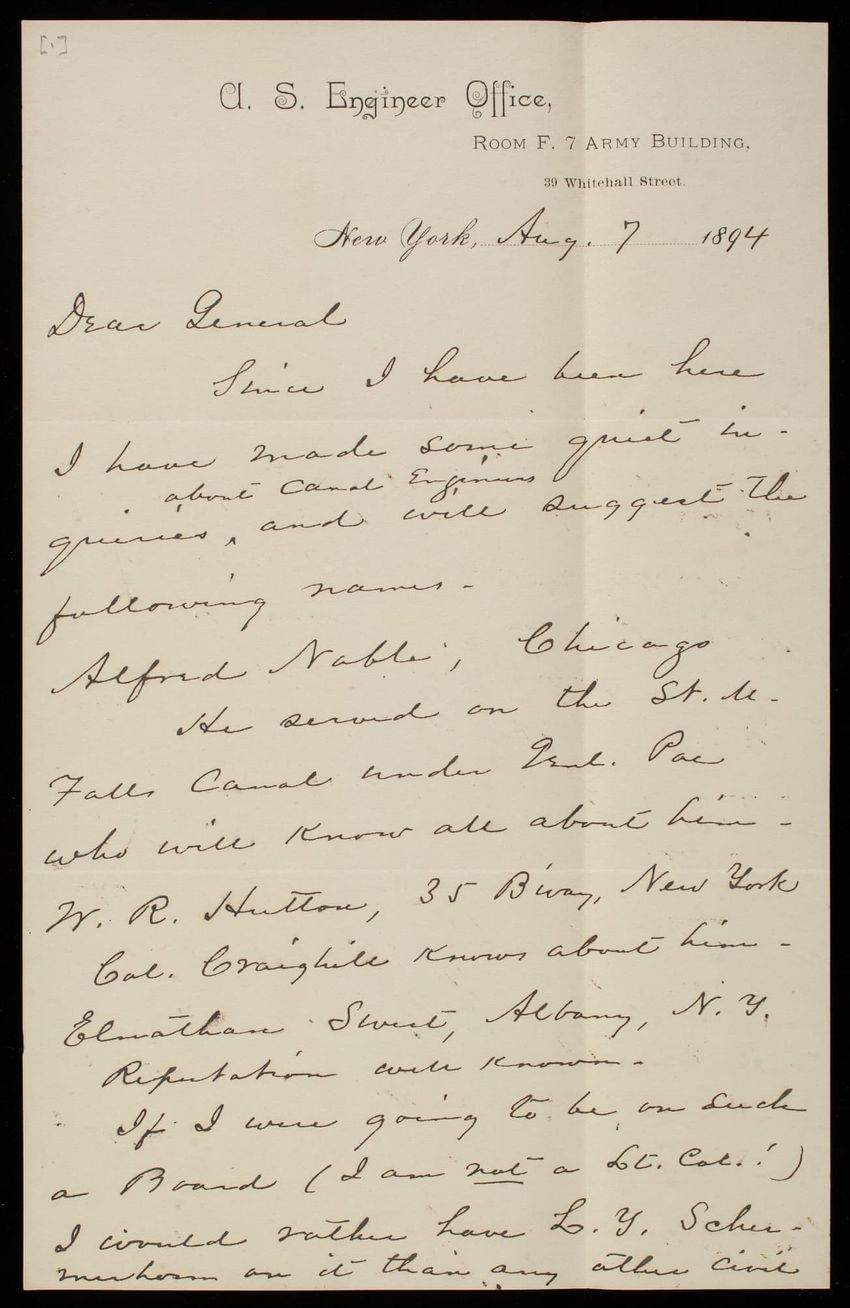 [1]
U. S. Engineer Office,
Room F. 7 Army Building,
39 Whitehall Street.
New York, Aug. 7 1894
Dear General
Since I have been here
I have made some quiet in-
about Canal Engineers
quiries ‸ and will suggest the
following names -
Alfred Noble, Chicago
He served on the St. M.
Falls Canal under Genl. Poe
who will know all about him -
W. R. Hutton, 35 B'way, New York
Col. Craighill knows about him -
Elnathan Sweet, Albany, N. Y.
Reputation well known -
If I were going to be on such
a Board (I am not a Lt. Col.!)
I would rather have L. Y. Scher-
merhorn on it than any other civil